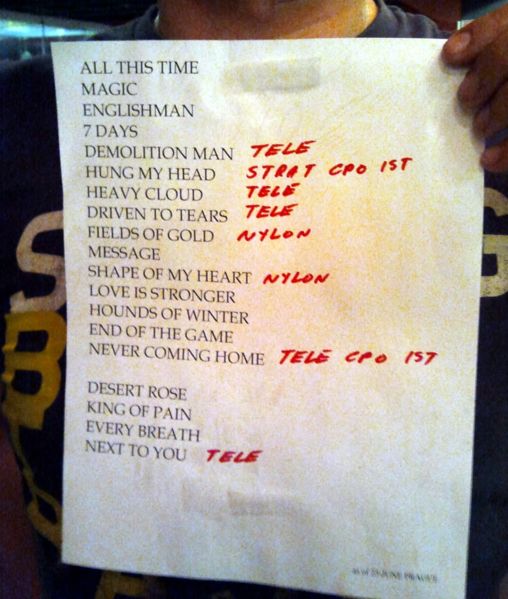 ALL THIS TIME
MAGIC
ENGLISHMAN
7 DAYS
DEMOLITION MAN TELE
HUNG MY HEAD STRAT CPO 1ST
HEAVY CLOUD TELE
DRIVEN TO TEARS TELE
FIELDS OF GOLD NYLON
MESSAGE
SHAPE OF MY HEART NYLON
LOVE IS STRONGER
HOUNDS OF WINTER
END OF THE GAME
NEVER COMING HOME TELE CPO 1ST
DESERT ROSE
KING OF PAIN
EVERY BREATH
NEXT TO YOU TELE
as of 25 JUNE PRAGUE